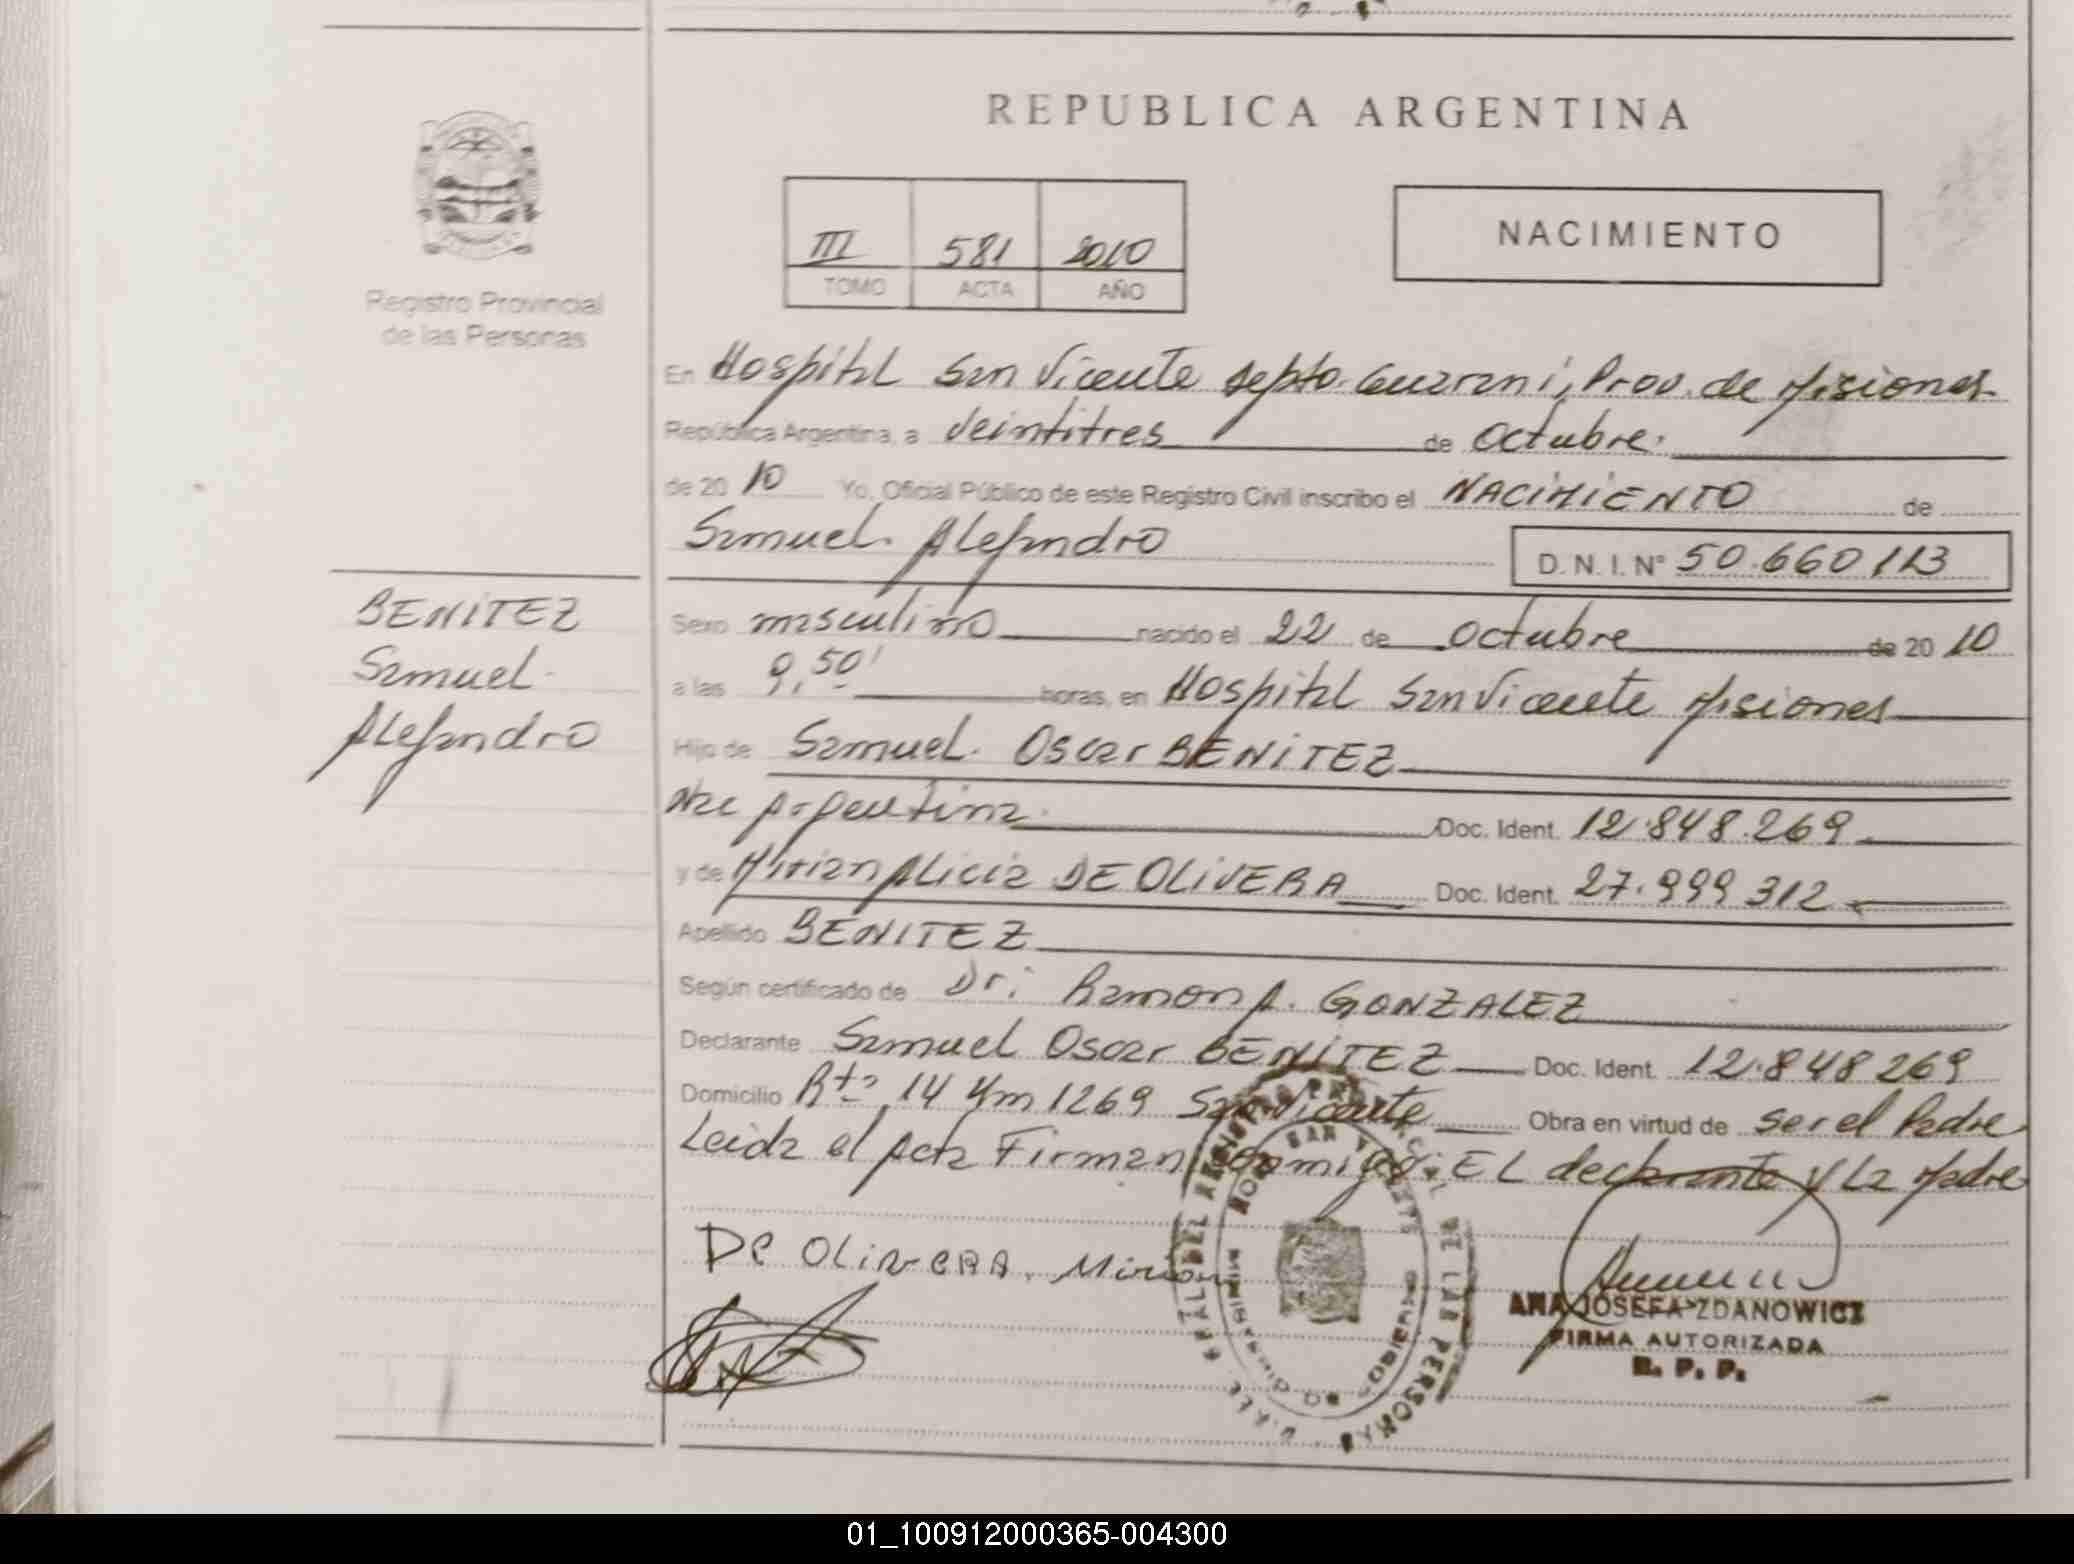 REPUBLICA ARGENTINA
III 581 2010
TOMO ACTA AÑO
NACIMIENTO
Registro Provincial
de las Personas
En Hospital San Vicente Depto. Guarani, Prov. de Misiones
República Argentina, a Veintitres de Octubre.
de 20 10 Yo, Oficial Público de este Registro Civil inscribo el NACIMIENTO de
Samuel Alejandro D. N. I. Nº 50.660113
BENITEZ
Samuel
Alejandro
Sexo masculino nacido el 22 de Octubre de 20 10
a las 9,50' horas, en Hospital San Vicente Misiones
Hijo de Samuel Oscar BENITEZ
Nac Argentina. Doc. Ident. 12.848.269
y de Mirian Alicia DE OLIVERA Doc. Ident. 27.999 312
Apellido BENITEZ
Según certificado de Dr. Ramon A. GONZALEZ
Declarante Samuel Oscar BENITEZ Doc. Ident. 12.848 269
Domicilio Rta 14 Km 1269 San Vicente Obra en virtud de ser el Padre
Leida el Acta Firman conmigo: EL declarante y La Madre
De OLivera. Mirian
ANA JOSEFA ZDANOWICZ
FIRMA AUTORIZADA
R. P. P.
01_100912000365-004300